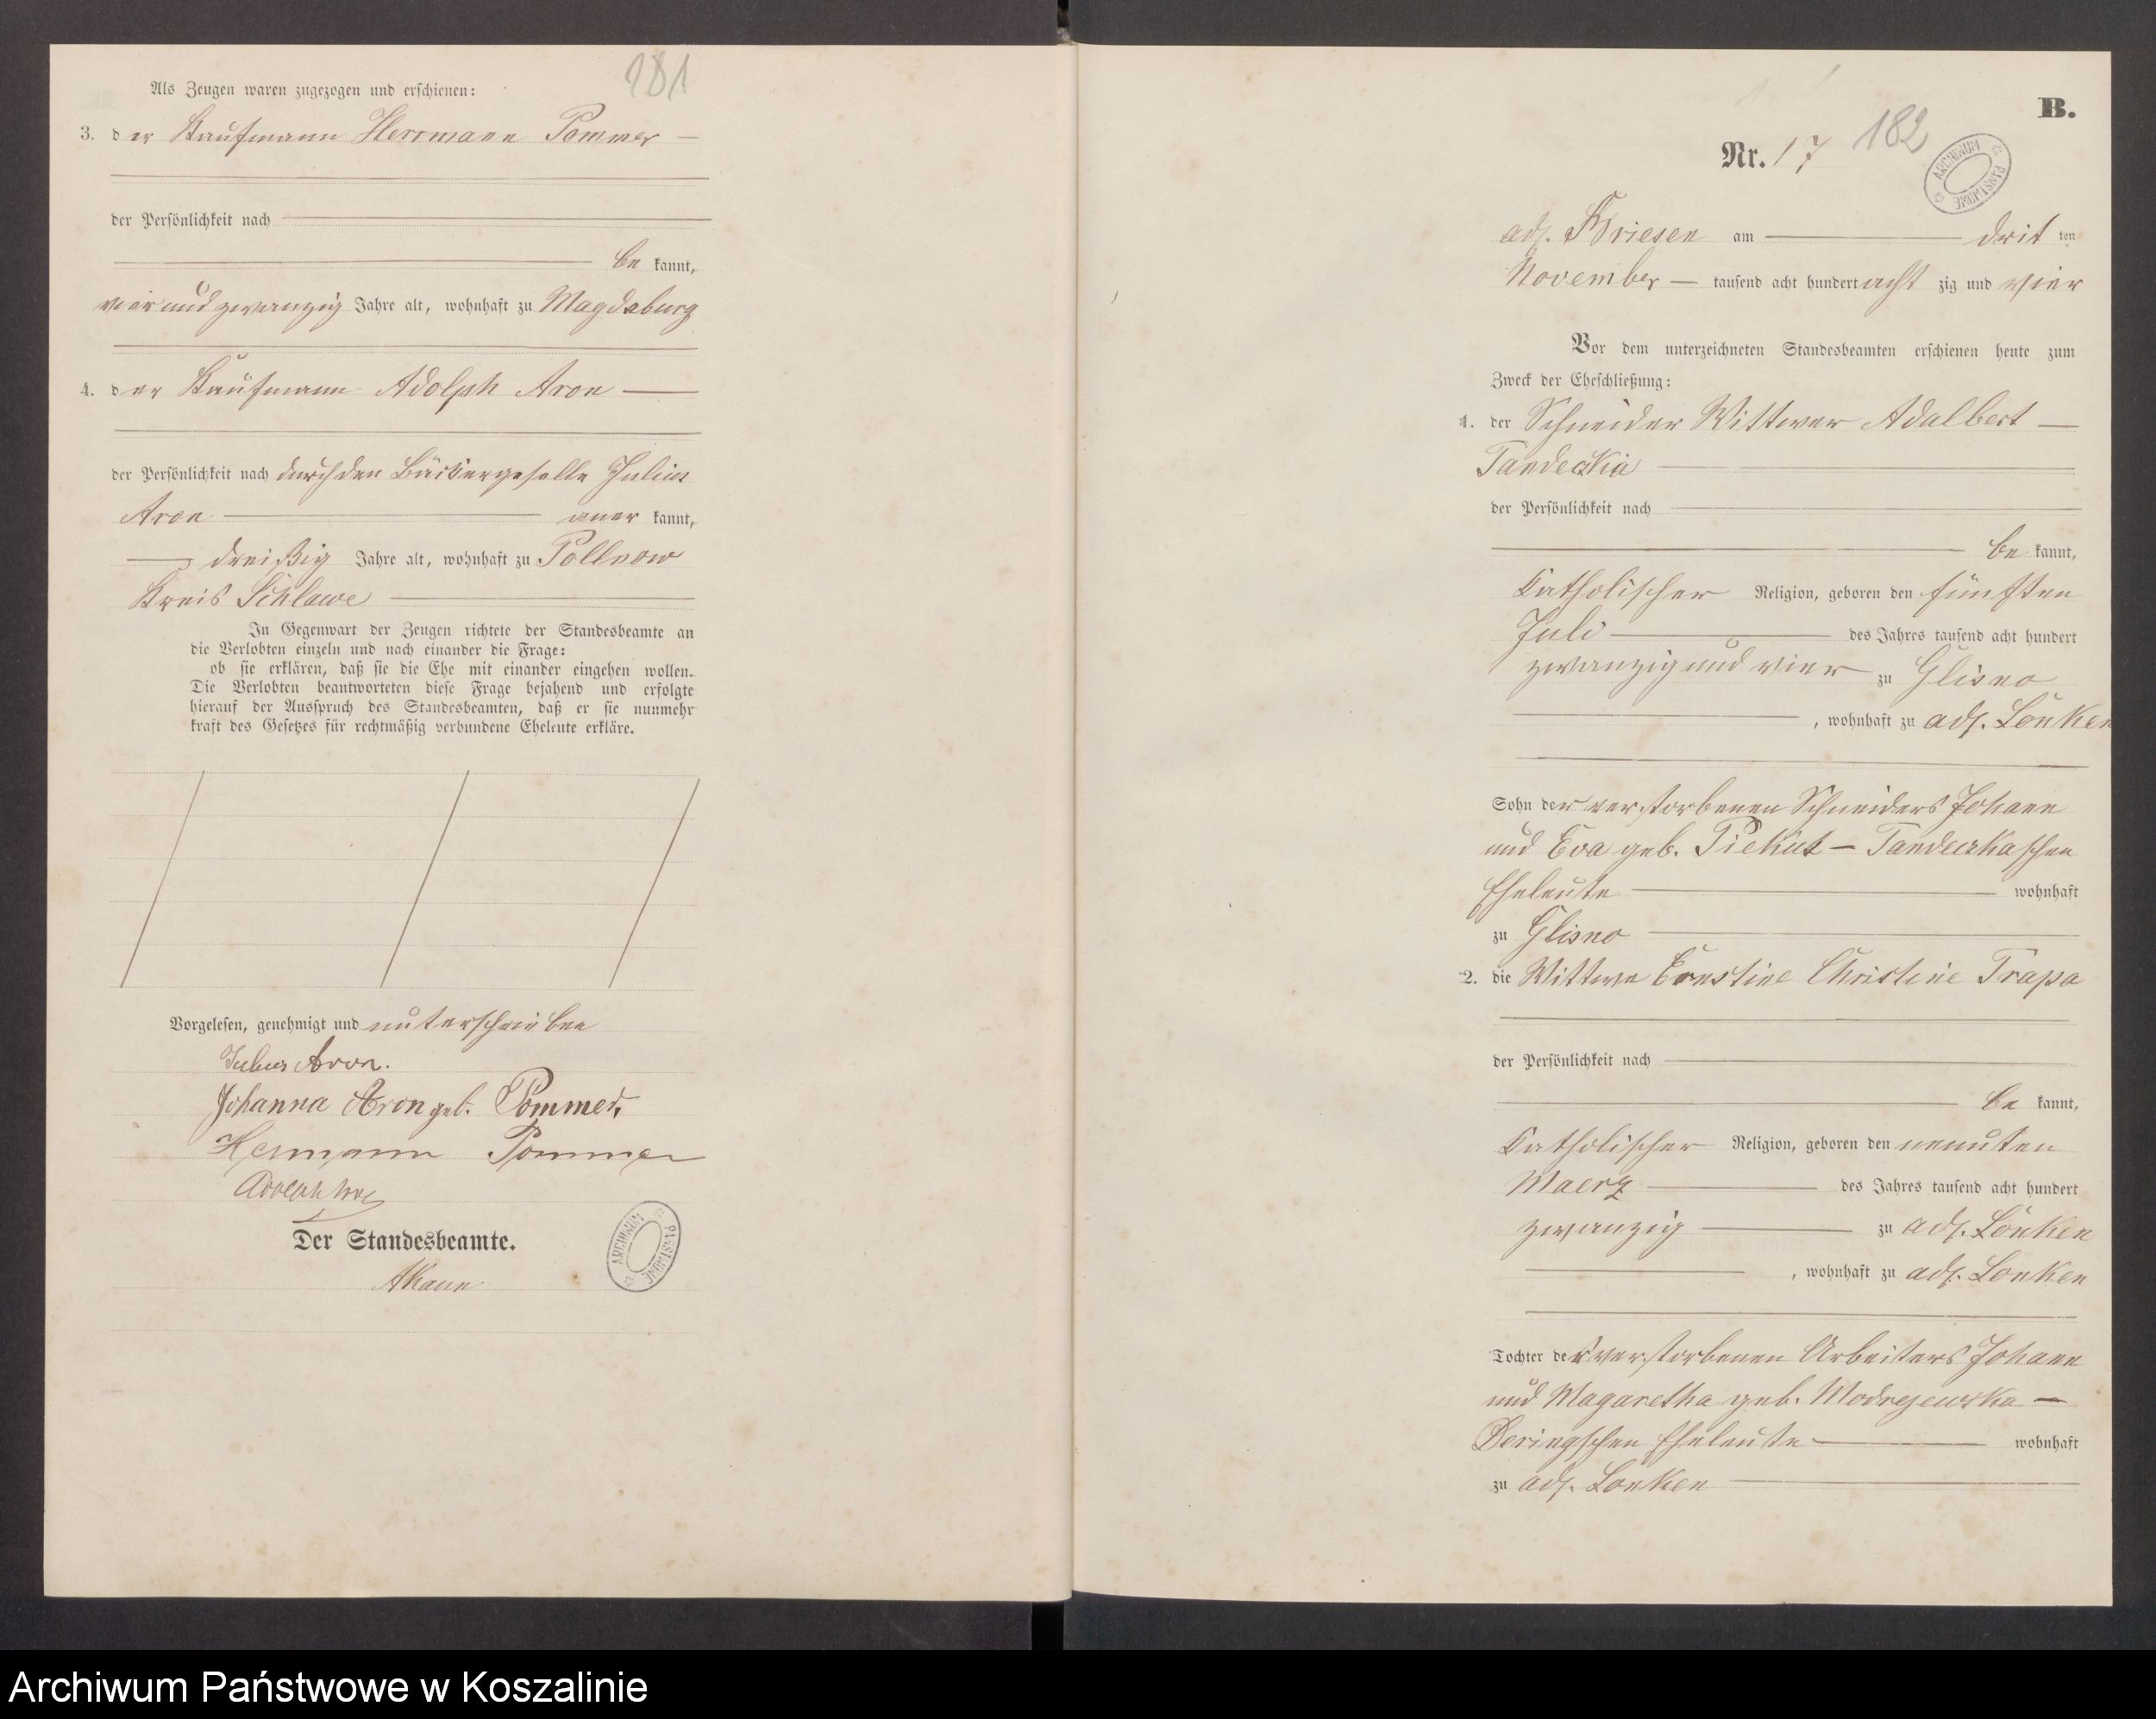 181
Als Zeugen waren zugezogen und erschienen:
3. der Kaufmann Herrmann Pommer —
der Persönlichkeit nach
be kannt,
vier und zwanzig Jahre alt, wohnhaft zu Magdeburg
4. der Kaufmann Adolph Aron —
der Persönlichkeit nach durch den Bäckergeselle Julius
Aron — aner kannt,
— dreißig Jahre alt, wohnhaft zu Pollnow
Kreis Schlawe —
In Gegenwart der Zeugen richtete der Standesbeamte an
die Verlobten einzeln und nach einander die Frage:
ob sie erklären, daß sie die Ehe mit einander eingehen wollen.
Die Verlobten beantworteten diese Frage bejahend und erfolgte
hierauf der Ausspruch des Standesbeamten, daß er sie nunmehr
kraft des Gesetzes für rechtmäßig verbundene Eheleute erkläre.
Vorgelesen, genehmigt und unterschrieben
Julius Aron.
Johanna Aron geb. Pommer.
Hermann Pommer
Adolph Aron
Der Standesbeamte.
ARCHIWUM PAŃSTWOWE
B.
Nr. 17
182
ARCHIWUM PAŃSTWOWE
adl. Briesen am — drit ten
November — tausend acht hundert acht zig und vier
Vor dem unterzeichneten Standesbeamten erschienen heute zum
Zweck der Eheschließung:
1. der Schneider Wittwer Adalbert —
Tandeczka —
der Persönlichkeit nach
be kannt,
Katholischer Religion, geboren den fünften
Juli — des Jahres tausend acht hundert
zwanzig und vier zu Glisno
—, wohnhaft zu adl. Lonken
Sohn der verstorbenen Schneiders Johann
und Eva geb. Piekut — Tandeczkaschen
Eheleute — wohnhaft
zu Glisno —
2. die Wittwe Ernstine Christine Trapa
der Persönlichkeit nach
be kannt,
Katholischer Religion, geboren den neunten
Maerz — des Jahres tausend acht hundert
zwanzig — zu adl. Lonken
—, wohnhaft zu adl. Lonken
Tochter der verstorbenen Arbeiters Johann
und Magaretha geb. Modrejewska —
Deringschen Eheleute — wohnhaft
zu adl. Lonken —
Archiwum Państwowe w Koszalinie